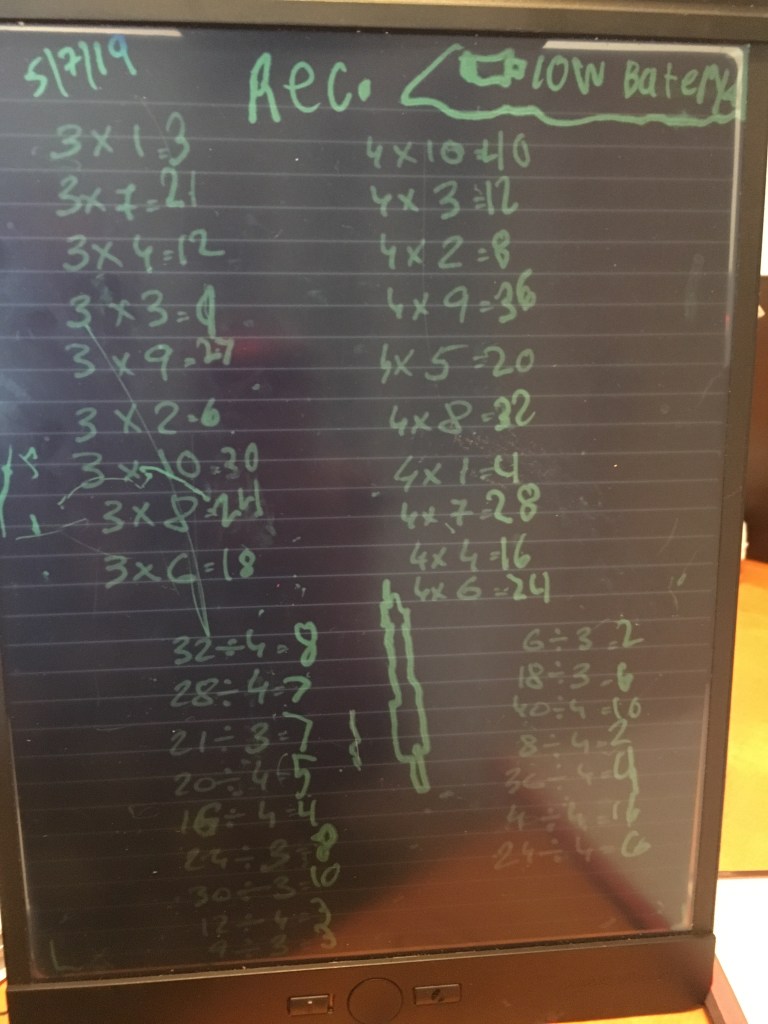 5/7/19
Rec.
low Batery
3 x 1 = 3
3 x 7 = 21
3 x 4 = 12
3 x 3 = 9
3 x 9 = 27
3 x 2 = 6
3 x 10 = 30
3 x 8 = 24
3 x 6 = 18
4 x 10 = 40
4 x 3 = 12
4 x 2 = 8
4 x 9 = 36
4 x 5 = 20
4 x 8 = 32
4 x 1 = 4
4 x 7 = 28
4 x 4 = 16
4 x 6 = 24
32 ÷ 4 = 8
28 ÷ 4 = 7
21 ÷ 3 = 7
20 ÷ 4 = 5
16 ÷ 4 = 4
24 ÷ 3 = 8
30 ÷ 3 = 10
12 ÷ 4 = 3
9 ÷ 3 = 3
6 ÷ 3 = 2
18 ÷ 3 = 6
40 ÷ 4 = 10
8 ÷ 4 = 2
36 ÷ 4 = 9
4 ÷ 4 = 16
24 ÷ 4 = 6